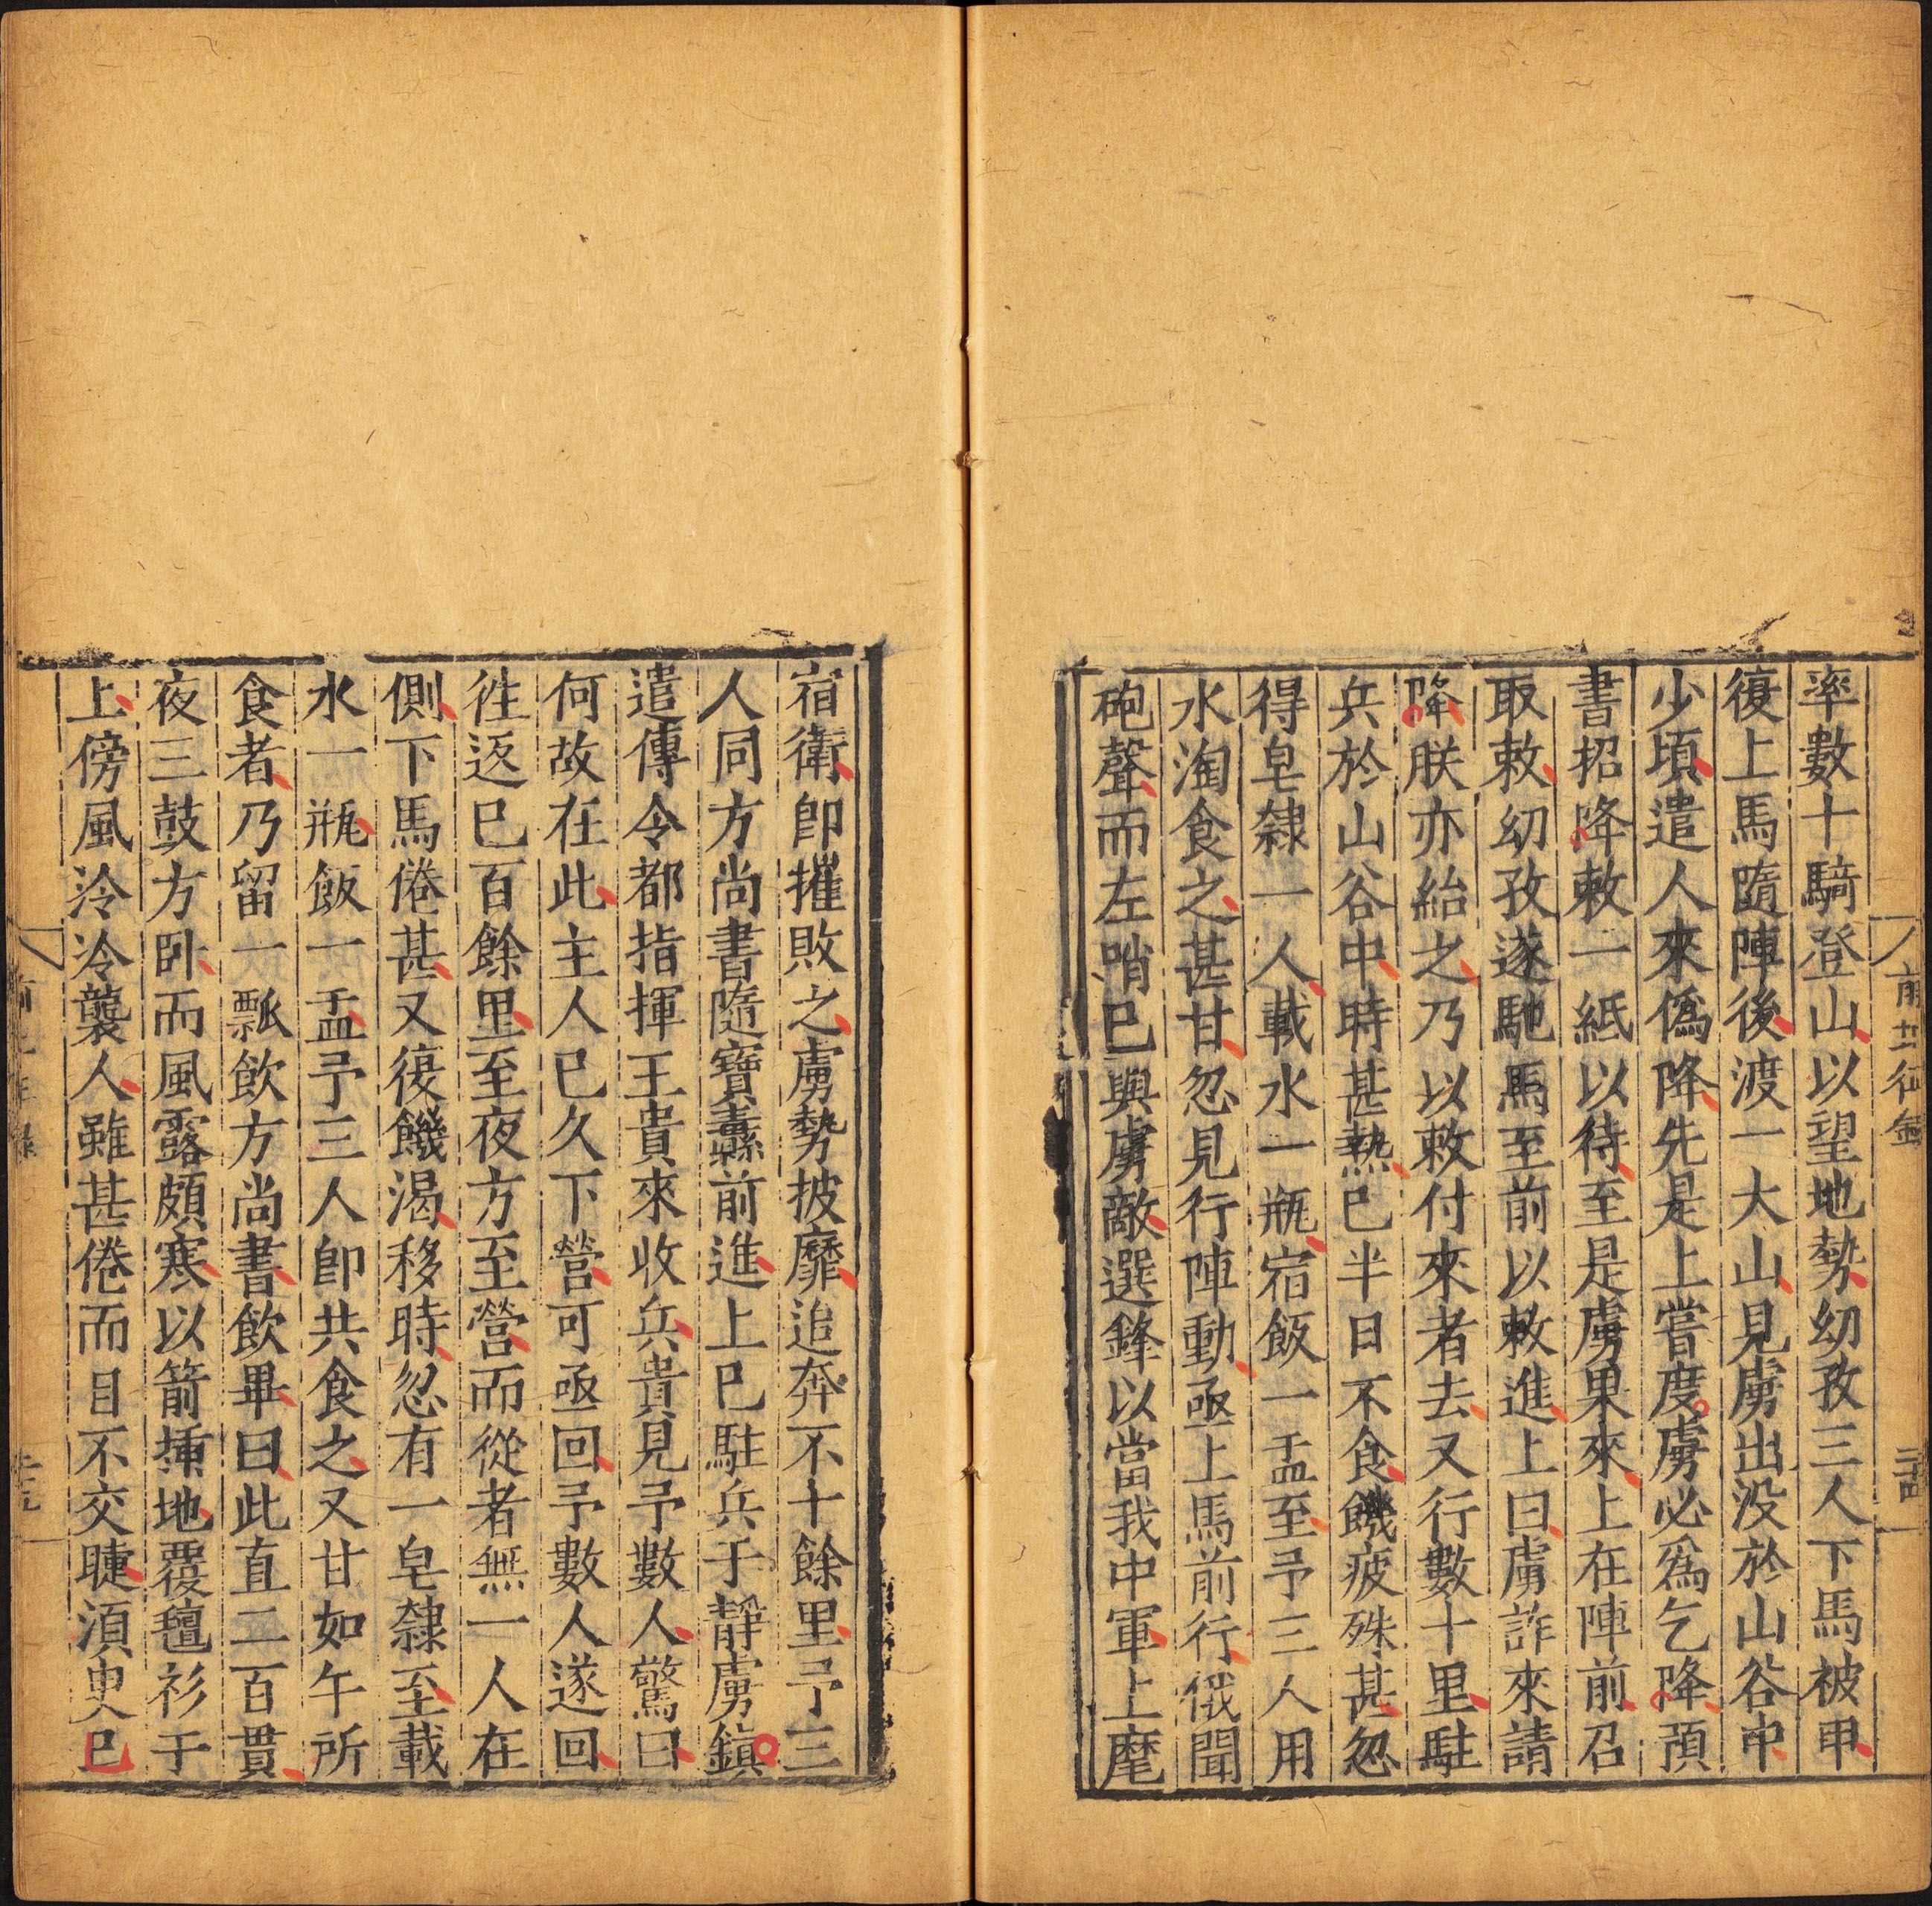 率數十騎登山以望地勢幼孜三人下馬被甲
復上馬隨陣後渡一大山見虜出没於山谷中
少頃遣人來僞降先是上嘗度虜必爲乞降預
書招降敕一紙以待至是虜果來上在陣前召
取敕幼孜遂馳馬至前以敕進上曰虜詐來請
降朕亦紿之乃以敕付來者去又行數十里駐
兵於山谷中時甚熱已半日不食饑疲殊甚忽
得皂隸一人載水一瓶宿飯一盂至予三人用
水淘食之甚甘忽見行陣動亟上馬前行俄聞
砲聲而左哨已與虜敵選鋒以當我中軍上麾
宿衛卽摧敗之虜勢披靡追奔不十餘里予三
人同方尚書隨寶纛前進上已駐兵于靜虜鎮
遣傳令都指揮王貴來收兵貴見予數人驚曰
何故在此主人已久下營可亟回予數人遂回
徃返已百餘里至夜方至營而從者無一人在
側下馬倦甚又復饑渴移時忽有一皂隸至載
水一瓶飯一盂予三人卽共食之又甘如午所
食者乃留一瓢飲方尚書飲畢曰此直二百貫
夜三鼓方卧而風露頗寒以箭揷地覆氊衫于
上傍風泠泠襲人雖甚倦而目不交睫湏臾已
前北征錄